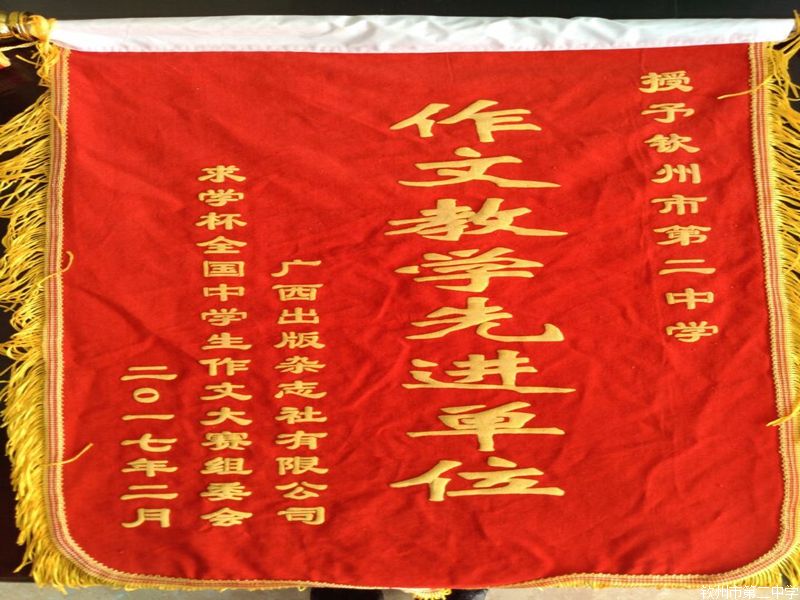 授予钦州市第二中学
作文教学先进单位
广西出版杂志社有限公司
求学杯全国中学生作文大赛组委会
二〇一七年二月
钦州市第二中学